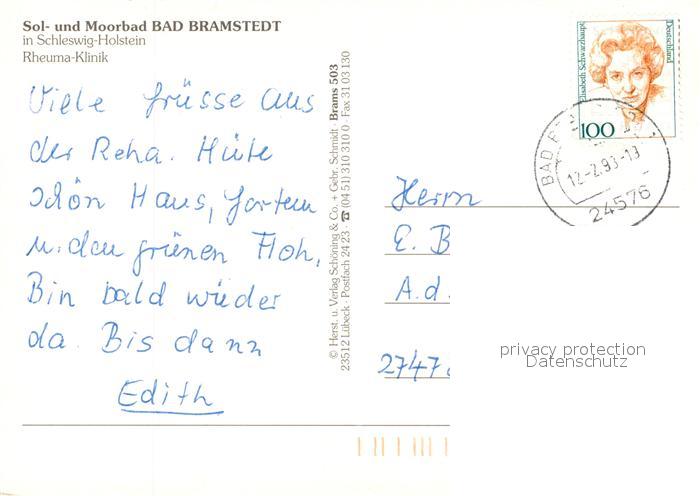 Sol- und Moorbad BAD BRAMSTEDT
in Schleswig-Holstein
Rheuma-Klinik
Viele Grüsse aus
der Reha. Hüte
schön Haus, Garten
u. den grünen Floh,
Bin bald wieder
da. Bis dann
Edith
© Herst. u. Verlag Schöning & Co. + Gebr. Schmidt · Brams 503
23512 Lübeck · Postfach 24 23 · ☎ (04 51) 310 310 0 · Fax 31 03 130
Elisabeth Schwarzhaupt
Deutschland
100
BAD
24576
Herrn
E. B
A.d.
2747
privacy protection
Datenschutz